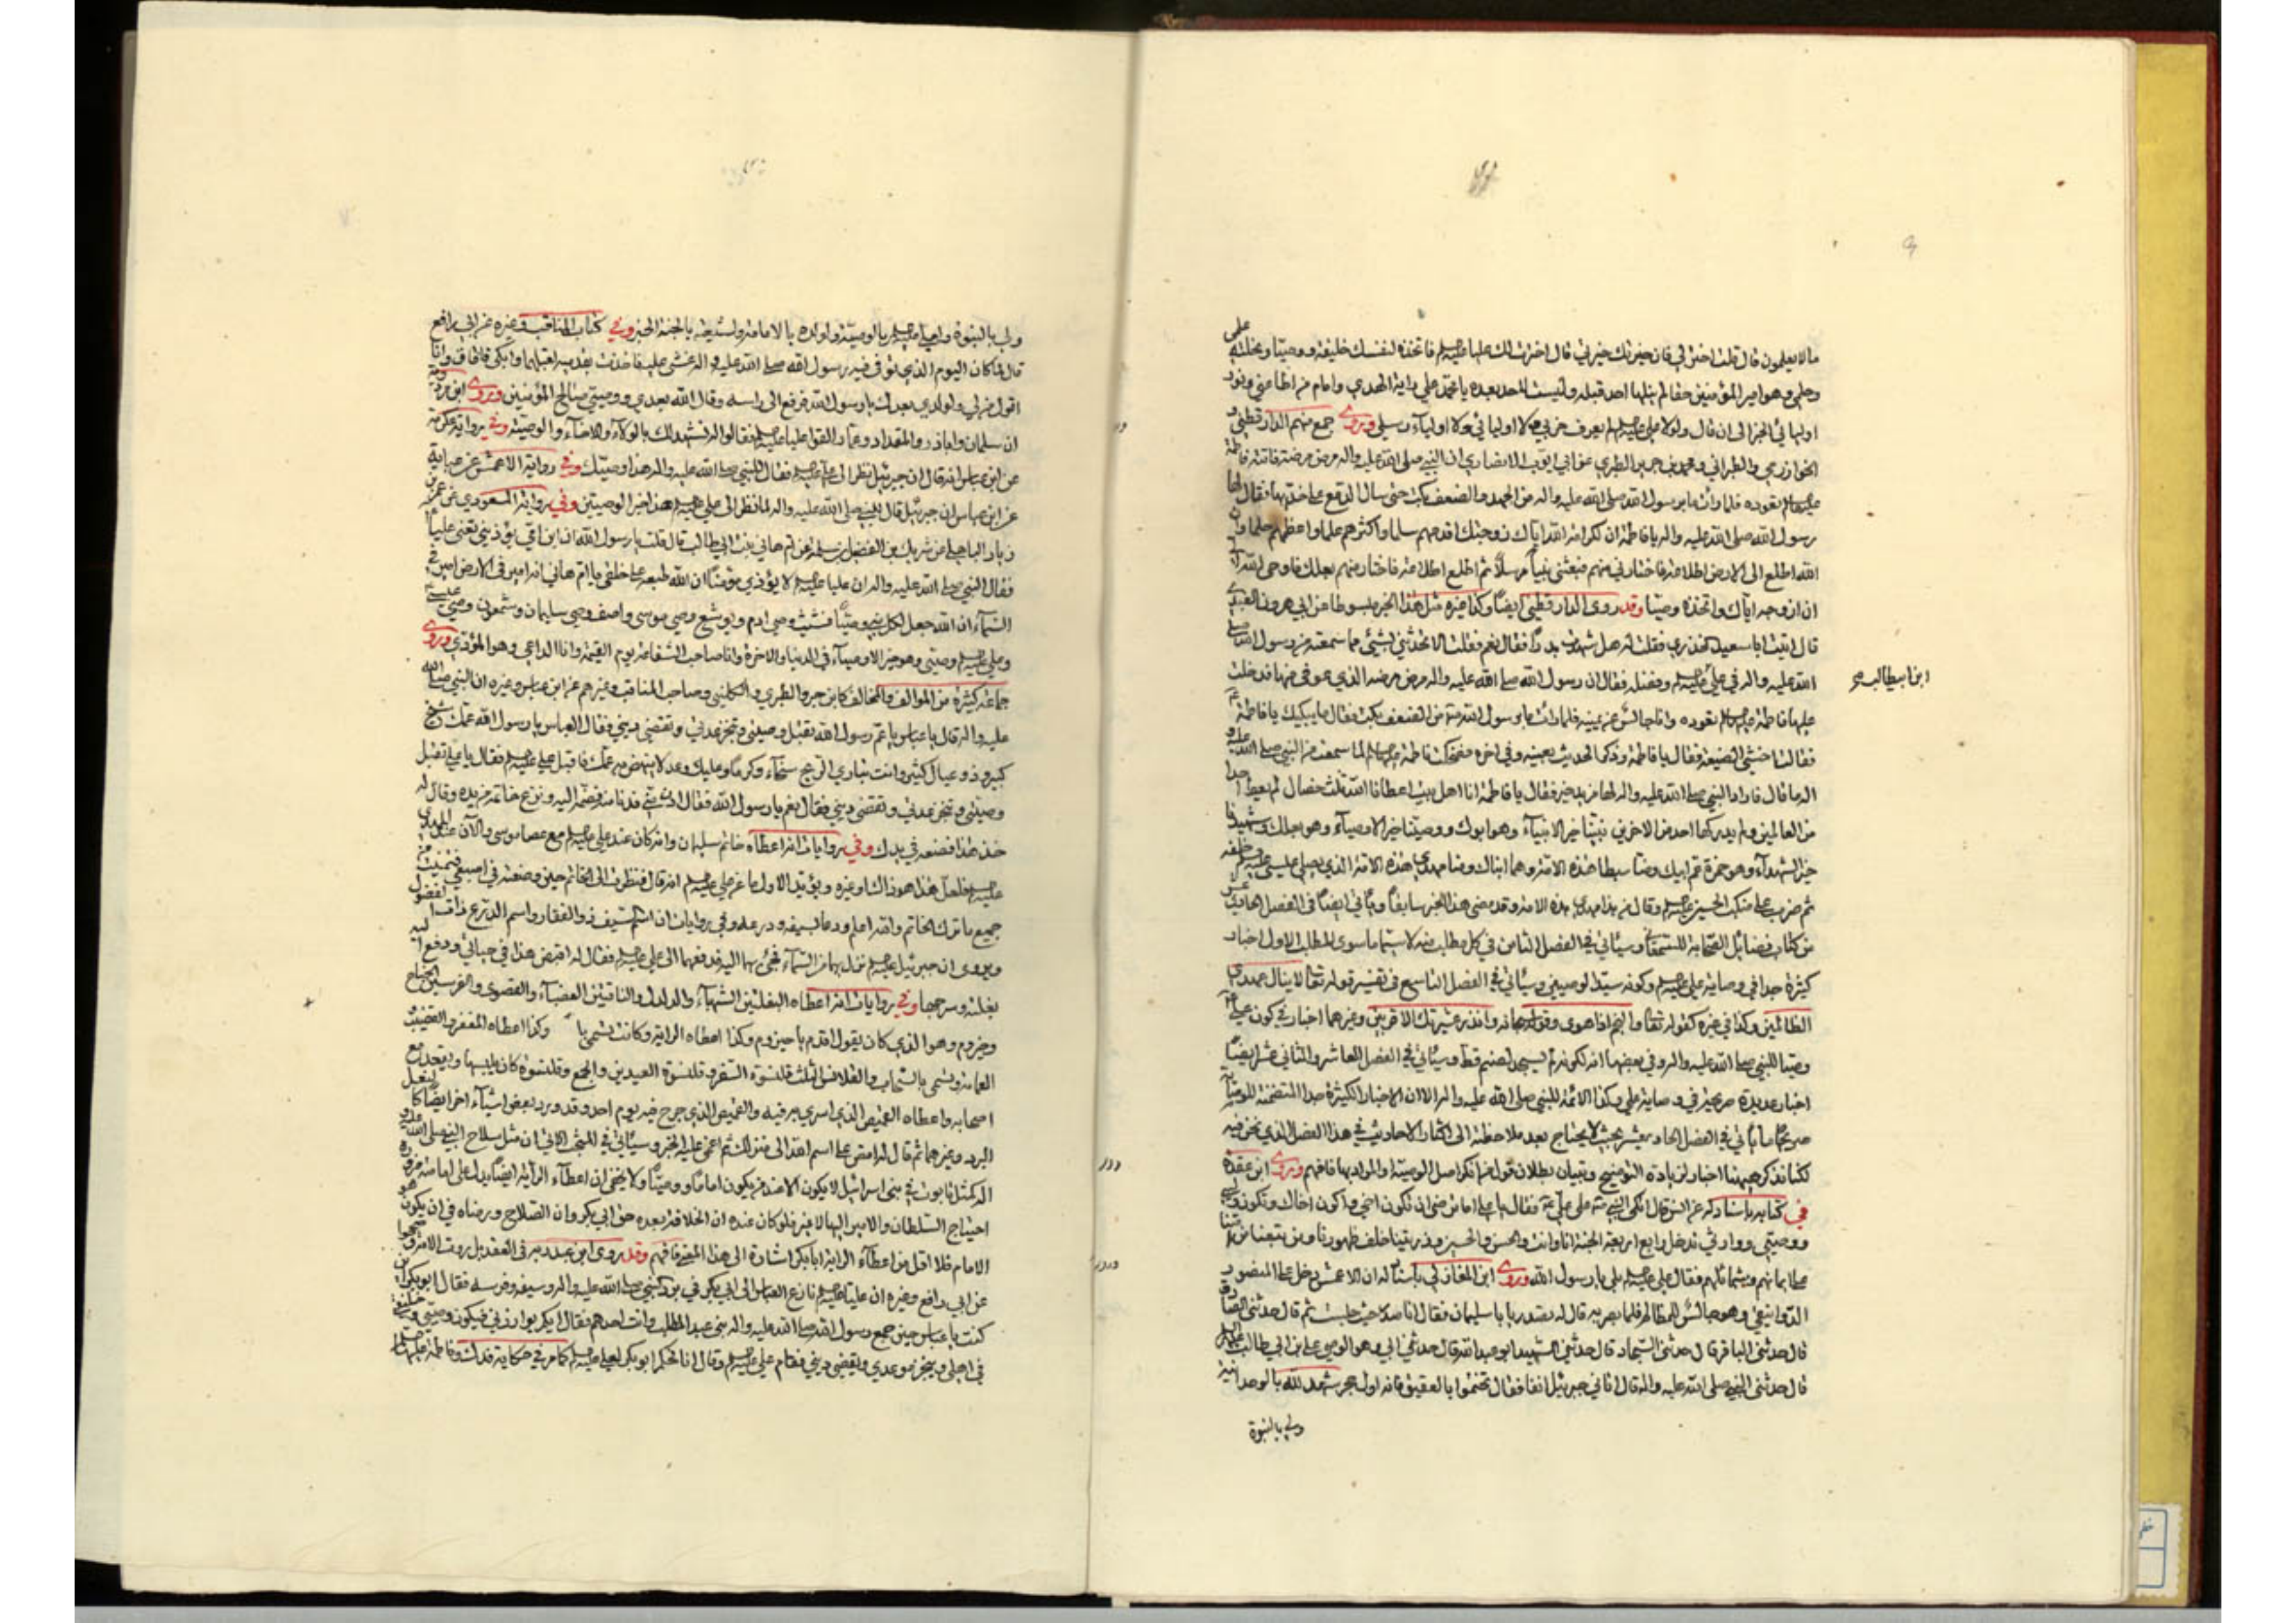 ما لا يعلمون قال قلت اختر لي فان خيرتك خيرتي قال اخترت لك عليا عليه السلام فاتخذه لنفسك خليفة ووصيا ونحلته علمي
وحلمي وهو امير المؤمنين حقا لم ينلها احد قبله وليست لاحد بعده يا محمد علي راية الهدى وامام من اطاعني ونور
اوليائي الخبر الى ان قال ولولا علي لم يعرف حزبي ولا اوليائي ولا اولياء رسلي وروى جمع منهم الدارقطني و
الخوارزمي والطبراني ومحمد بن جرير الطبري عن ابي ايوب الانصاري ان النبي صلى الله عليه واله مرض مرضة فاتته فاطمة
تعوده فلما رات ما برسول الله صلى الله عليه واله من الجهد والضعف بكت حتى سال الدمع على خديها فقال لها
رسول الله صلى الله عليه واله يا فاطمة ان لكرامة الله اياك زوجتك اقدمهم سلما واكثرهم علما واعظمهم حلما وان
الله اطلع الى الارض اطلاعة فاختارني منهم فبعثني نبيا مرسلا ثم اطلع اطلاعة فاختار منهم بعلك فاوحى الله الي
ان ازوجه اياك واتخذه وصيا وقد روى الدارقطني ايضا وكذا غيره مثل هذا الخبر مبسوطا عن ابي هرون العبدي
قال اتيت ابا سعيد الخدري فقلت له هل شهدت بدرا فقال نعم فقلت الا تحدثني بشيء مما سمعته من رسول الله صلى
الله عليه واله في علي وفضله فقال ان رسول الله صلى الله عليه واله مرض مرضه الذي عوفي منها فدخلت
ابن ابيطالب
عليها فاطمة تعوده وانا جالس عن يمينه فلما رات ما برسول الله من الضعف بكت فقال ما يبكيك يا فاطمة
فقالت اخشى الضيعة فقال يا فاطمة وذكر الحديث بعينه وفي اخره فضحكت فاطمة لما سمعت من النبي صلى الله عليه و
اله ما قال فاراد النبي صلى الله عليه واله لها مزيد خير فقال يا فاطمة انا اهل بيت اعطانا الله ثلث خصال لم يعط احدا
من العالمين ولم يدركها احد من الاخرين نبينا خير الانبياء وهو ابوك ووصينا خير الاوصياء وهو بعلك وشهيدنا
خير الشهداء وهو حمزة عم ابيك ومنا سبطا هذه الامة وهما ابناك ومنا مهدي هذه الامة الذي يصلي عيسى خلفه
ثم ضرب على منكب الحسين وقال من هذا مهدي هذه الامة وقد مضى هذا الخبر سابقا وياتي ايضا في الفصل الحادي عشر
من كتاب فضائل الصحابة للسمعاني وسيأتي في الفصل الثامن في كل مطالب منه لا سيما ما سوى المطلب الاول اخبار
كثيرة جدا في وصاية علي وكونه سيد الوصيين وسيأتي في الفصل التاسع في تفسير قوله تعالى لا ينال عهدي
الظالمين وكذا في غيره كقوله تعالى والنجم اذا هوى وقوله سبحانه وانذر عشيرتك الاقربين وغيرهما اخبار في كون علي
وصيا للنبي صلى الله عليه واله وفي بعضها انه لكونه لم يسجد لصنم قط وسيأتي في الفصل العاشر والثاني عشر ايضا
اخبار عديدة صريحة في وصاية علي وكذا الائمة للنبي صلى الله عليه واله الا ان الاخبار الكثيرة جدا المتضمنة للوصاية
صريحا ما ياتي في الفصل الحادي عشر بحيث لا يحتاج بعد ملاحظته الى اكثار الاحاديث في هذا الفصل الذي نحن فيه
لكنا نذكر هيهنا اخبارا لزيادة التوضيح وتبيان بطلان قول من انكر اصل الوصية او المراد بها فافهم وروى ابن عقدة
في كتابه باسناد له عن انس قال اتكى النبي على علي فقال يا علي اما ترضى ان تكون اخي واكون اخاك وتكون وليي
ووصيي ووارثي تدخل رابع اربعة الجنة انا وانت والحسن والحسين وذريتنا خلف ظهورنا ومن تبعنا من امتنا
على ايمانهم وشمائلهم فقال علي بلى يا رسول الله وروى ابن المغازلي باسناد له ان الاعمش دخل على المنصور
الدوانيقي وهو جالس للمظالم فلما بصر به قال له تصدر يا با سليمان فقال انا صدر حيث جلست ثم قال حدثني الصادق
قال حدثني الباقر قال حدثني السجاد قال حدثني الشهيد ابو عبد الله قال حدثني ابي وهو الوصي علي بن ابي طالب
قال حدثني النبي صلى الله عليه واله قال اتاني جبرئيل انفا فقال تختموا بالعقيق فانه اول حجر شهد لله بالوحدانية
ولي بالنبوة
ولي بالنبوة ولعلي بالوصية ولولده بالامامة ولشيعته بالجنة الخبر وفي كتاب المناقب وغيره عن ابي رافع
قال لما كان اليوم الذي توفي فيه رسول الله صلى الله عليه واله غشي عليه فاخذت بقدميه اقبلهما وابكي فافاق وانا
اقول من لي ولولدي بعدك يا رسول الله فرفع الي راسه وقال الله بعدي ووصيي صالح المؤمنين وروى ابن مردويه
ان سلمان واباذر والمقداد وعمار القوا عليا فقالوا له نشهد لك بالولاء والاخاء والوصية وفي رواية عكرمة
عن ابن عباس انه قال ان جبرئيل نظر الى علي فقال للنبي صلى الله عليه واله هذا وصيك وفي رواية الاعمش عن عباية
عن ابن عباس ان جبرئيل قال للنبي صلى الله عليه واله لما نظر الى علي هذا خير الوصيين وفي رواية المسعودي عن عمر بن
زياد الباهلي عن شريك بن الفضل بن سلمة عن ام هاني بنت ابي طالب قال قلت يا رسول الله ان ابن امي يؤذيني تعني عليا
فقال النبي صلى الله عليه واله ان عليا لا يؤذي مؤمنا ان الله طبعه على خلقي يا ام هاني انه امير في الارض امير في
السماء ان الله جعل لكل نبي وصيا فشيث وصي ادم ويوشع وصي موسى واصف وصي سليمان وشمعون وصي عيسى
وعلي وصيي وهو خير الاوصياء في الدنيا والاخرة وانا صاحب الشفاعة يوم القيمة وانا الداعي وهو المؤدي وروى
جماعة كثيرة من الموالف والمخالف كابن جرير الطبري والكليني وصاحب المناقب وغيرهم عن ابن عباس وغيره ان النبي صلى الله
عليه واله قال يا عباس يا عم رسول الله تقبل وصيتي وتنجز عدتي وتقضي ديني فقال العباس يا رسول الله عمك شيخ
كبير وذو عيال كثير وانت تباري الريح سخاء وكرما وعليك وعد لا ينهض به عمك فاقبل على علي فقال يا علي تقبل
وصيتي وتنجز عدتي وتقضي ديني فقال نعم يا رسول الله فقال ادن مني فدنا منه فضمه اليه ونزع خاتمه من يده وقال له
خذ هذا فضعه في يدك وفي روايات انه اعطاه خاتم سليمان وانه كان عند علي مع عصا موسى والآن عند المهدي
فلعل هذا هو ذا الشاو غيره ويؤيد الاول ما عن علي انه قال فنظرت الى الخاتم حين وضعته في اصبعي فتمنيت من
جميع ما ترك الخاتم والله اعلم ودعا بسيفه ودرعه وفي روايات ان اسم السيف ذو الفقار واسم الدرع ذات الفضول
ويروى ان جبرئيل نزل بها من السماء فجيء بها اليه فدفعهما الى علي فقال له اقبض هذا في حياتي ودفع اليه
بغلته وسرجها وفي روايات انه اعطاه البغلتين الشهباء والدلدل والناقتين العضباء والقصوى والفرسين الجناح
وحيزوم وهو الذي كان يقول اقدم يا حيزوم وكذا اعطاه الراية وكانت تسمى وكذا اعطاه المغفر والقضيب
العمامة وتسمى بالسحاب والقلانس الثلث قلنسوة السفر وقلنسوة العيدين والجمع وقلنسوة كان يلبسها ويقعد مع
اصحابه واعطاه القميص الذي اسري به فيه والقميص الذي جرح فيه يوم احد وقد ورد بعض اشياء اخر ايضا كالنعل
البرد وغيرهما ثم قال له امض على اسم الله الى منزلك ثم اغمي عليه الخبر وسيأتي في المبحث الاتي ان مثل سلاح النبي صلى الله عليه و
اله كمثل تابوت في بني اسرائيل لا يكون الا عند من يكون اماما ووصيا ولا يخفى ان اعطاء الراية ايضا يدل على امامته
احتياج السلطان والامير اليها لا غير فلو كان عنده ان الخلافة بعده حق ابي بكر وان الصلاح ورضاه في ان يكون هو
الامام فلا اقل من اعطاء الراية ابا بكر اشارة الى هذا المعنى فافهم وقد روى ابن عبد ربه في العقد بل روت الامة جميعا
عن ابي رافع وغيره ان عليا نازع العباس الى ابي بكر في برد النبي صلى الله عليه واله وسيفه وفرسه فقال ابو بكر اين
كنت يا عباس حين جمع رسول الله صلى الله عليه واله بني عبد المطلب وانت احدهم فقال ايكم يوازرني فيكون وصيي وخليفتي
في اهلي وينجز موعدي ويقضي ديني فقام علي وقال انا تحكم ابو بكر لعلي كما مر في حكاية فدك وفاطمة عليها